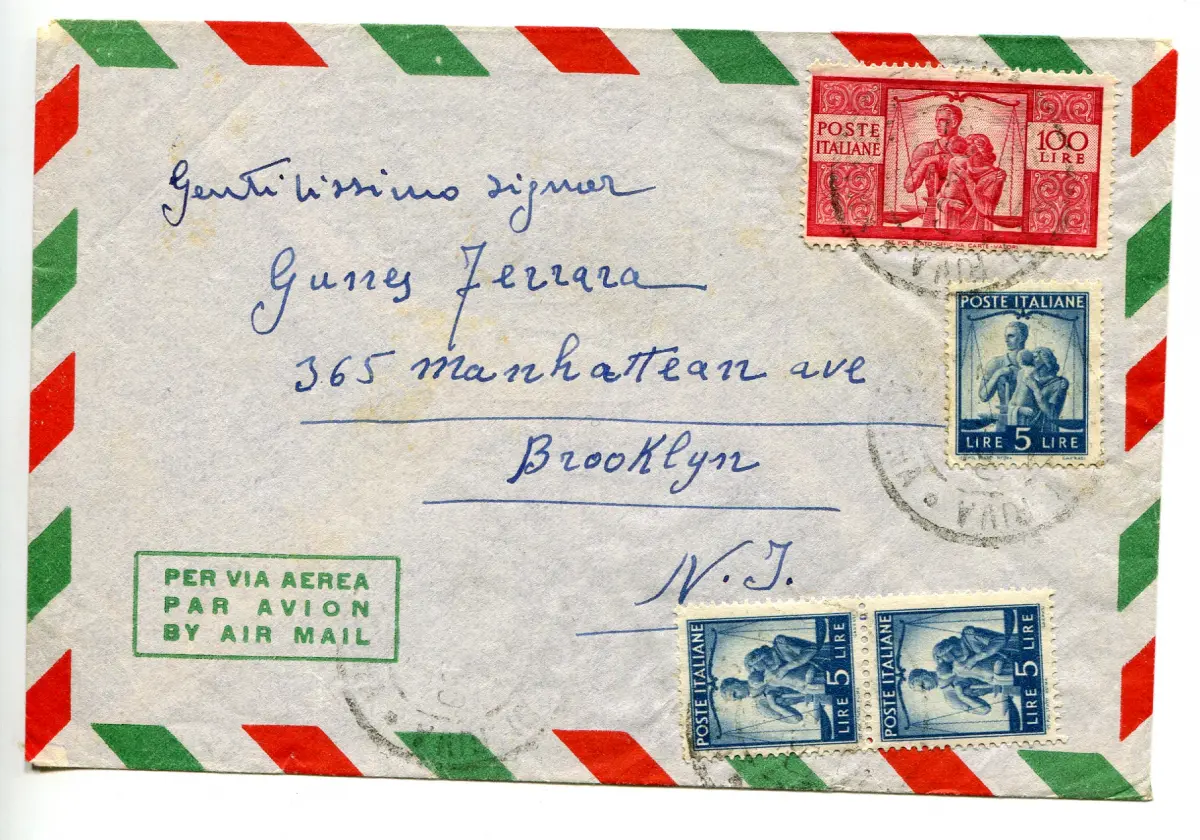 Gentilissimo signor
Ferrara
365 Manhattean ave
Brooklyn
N. J.
PER VIA AEREA
PAR AVION
BY AIR MAIL
POSTE
ITALIANE
100
LIRE
POSTE ITALIANE
LIRE 5 LIRE
POSTE ITALIANE
LIRE 5 LIRE
POSTE ITALIANE
LIRE 5 LIRE